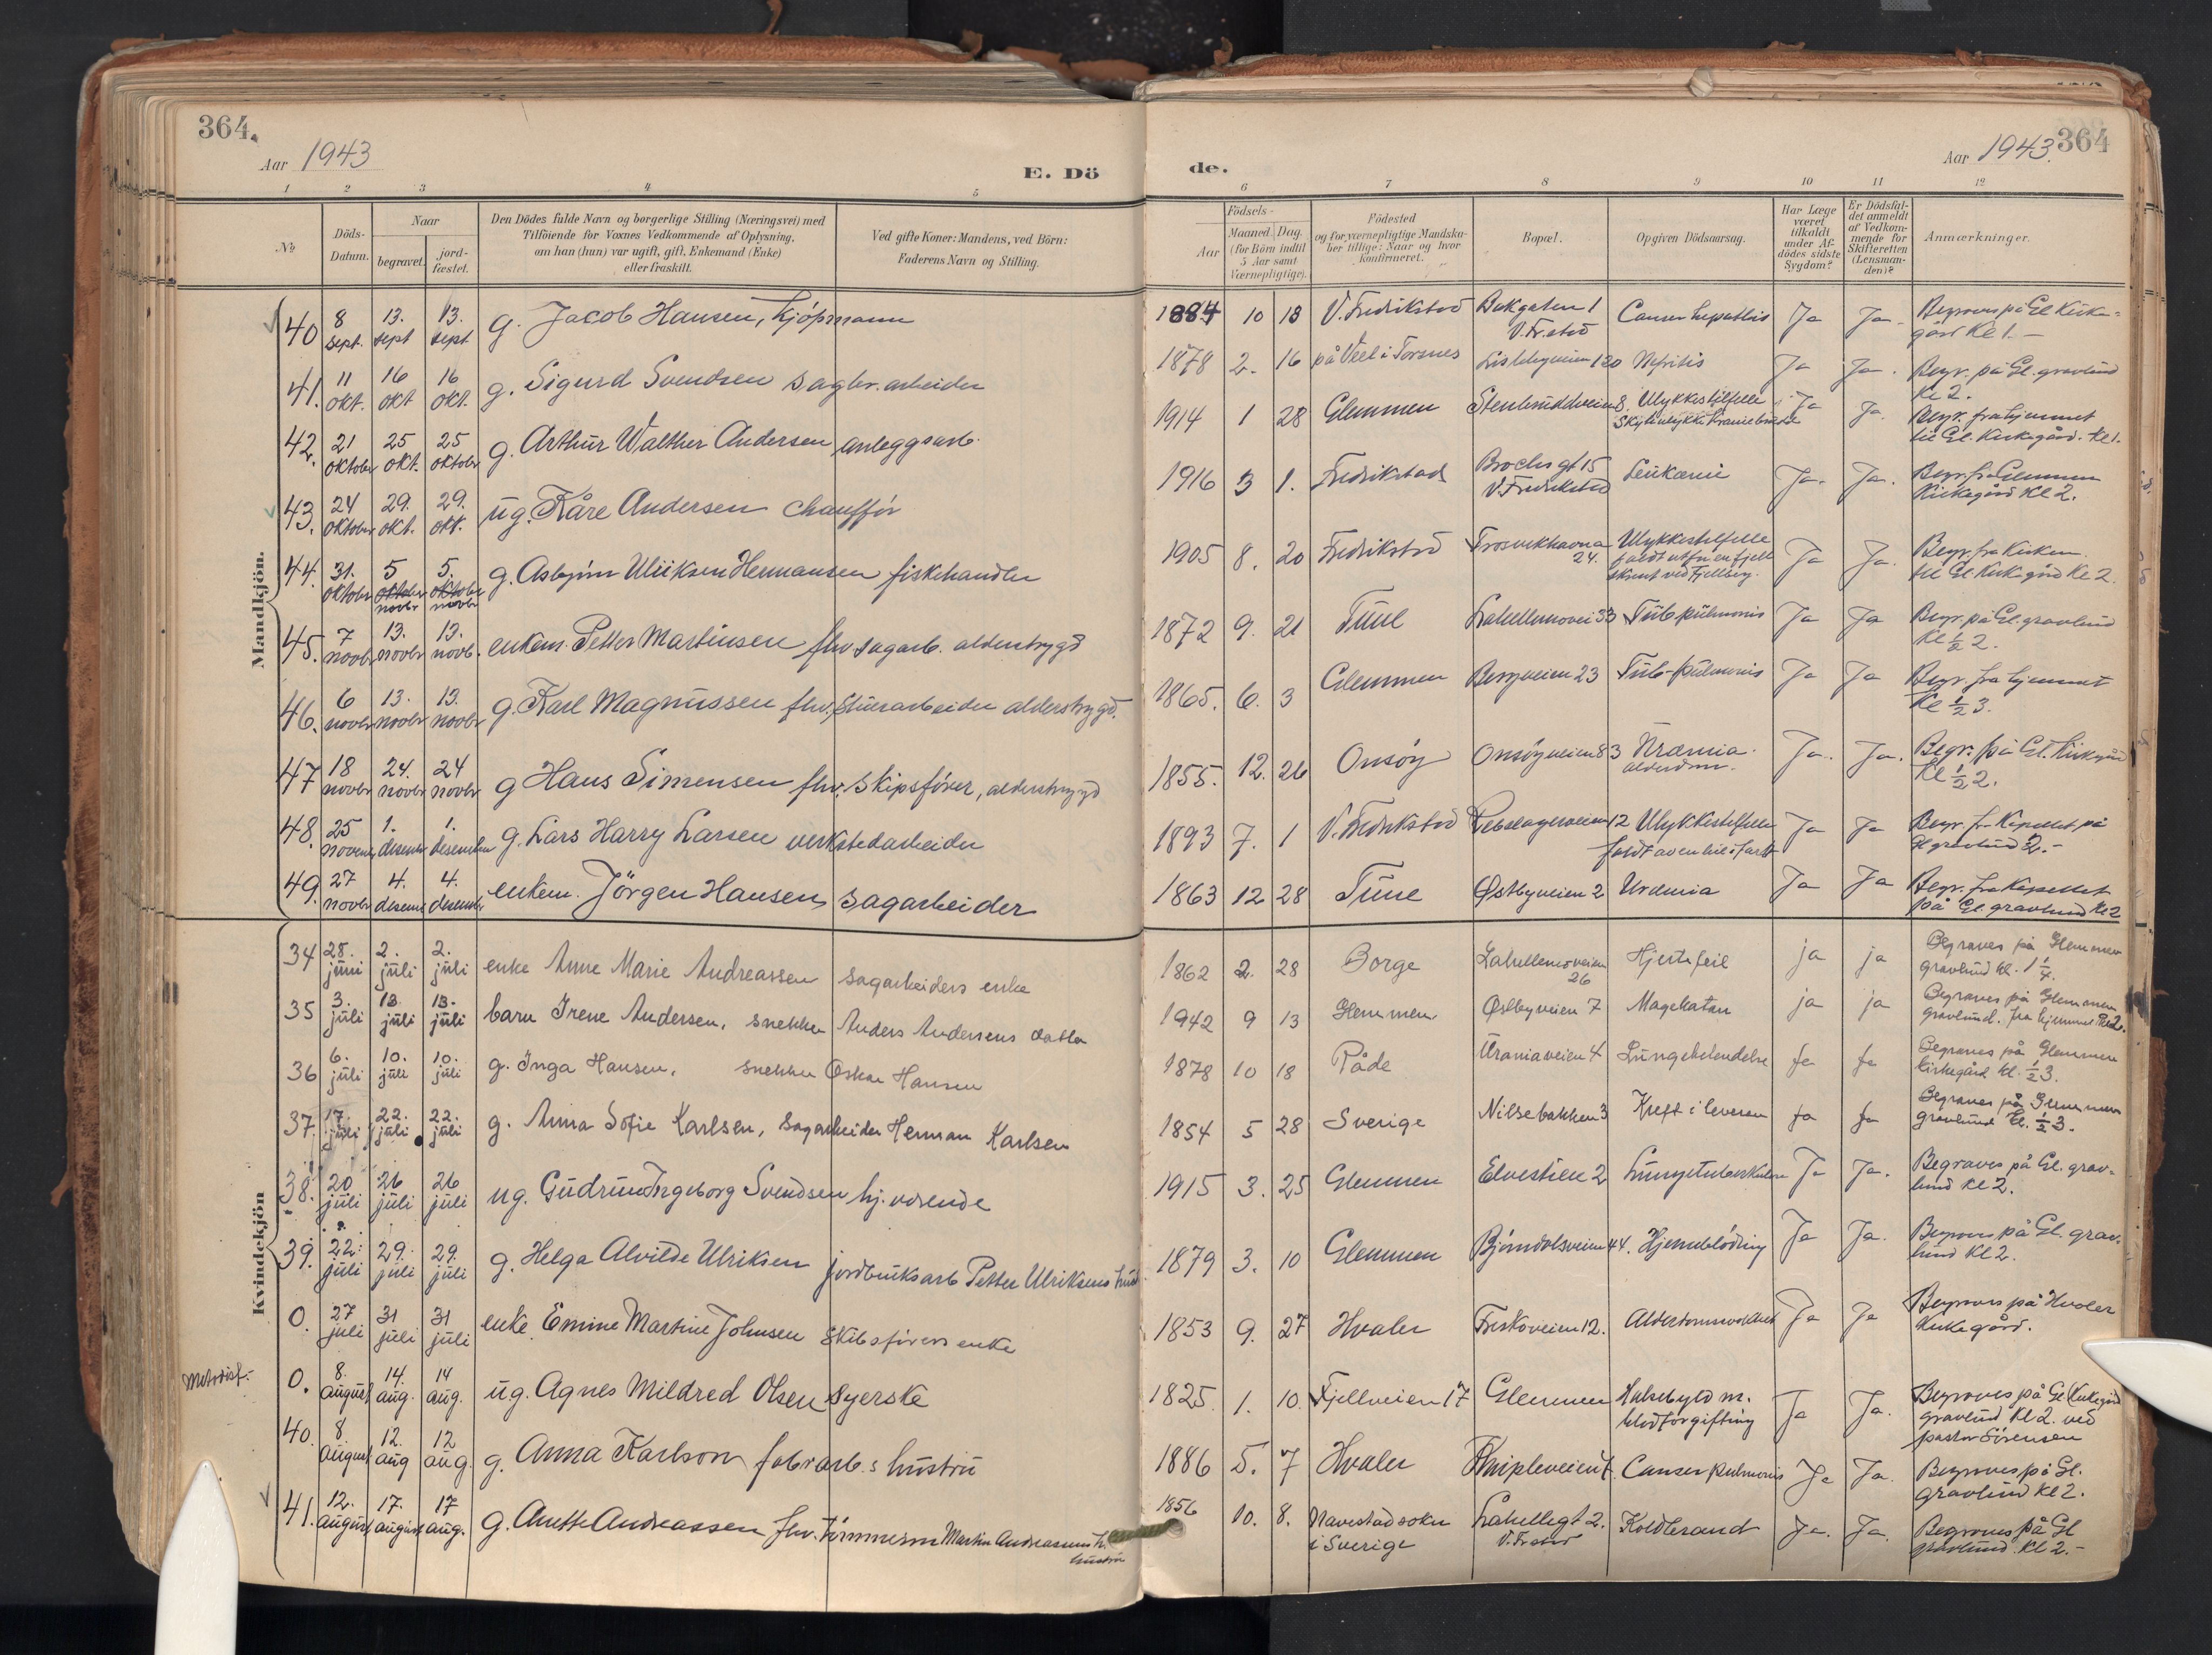 364.
Aar 1943
E. Dö
1 2 3 4 5
№
Döds-Datum.
Naar
begravet.
jord-fæstet.
Den Dödes fulde Navn og borgerlige Stilling (Næringsvei) med
Tilföiende for Voxnes Vedkommende af Oplysning,
om han (hun) var ugift, gift, Enkemand (Enke)
eller fraskilt.
Ved gifte Koner: Mandens, ved Börn:
Faderens Navn og Stilling.
Mandkjön.
40 8 sept. 13. sept 13. sept g. Jacob Hansen, kjöpmann
41. 11 okt. 16 okt 16 okt. g. Sigurd Svendsen sagbr. arbeider
42. 21 oktober 25 okt. 25 oktobr g. Arthur Walther Andersen anleggsarb.
43. 24 oktober 29. okt. 29. okt. ug. Kåre Andersen chaufför
44. 31. oktober 5 oktober novbr 5. oktober novbr g. Asbjörn Ulriksen Hermansen fiskehandler
45. 7 novbr 13. novbr 13. novb. enkem. Petter Martinsen fhv sagarb. alderstrygd
46. 6 novbr 13. novbr 13. novbr g. Karl Magnussen fhv. alderstrygd.
47 18 novbr 24. novbr 24 novbr g Hans Simensen fhv. skipsförer, alderstrygd
48. 25 novem 1. desembr 1. desember g Lars Harry Larsen verkstedarbeider
49. 27 novbr 4. desembr 4. desembr enkem. Jörgen Hansen sagarbeider
Kvindekjön
34 28. juni 2. juli 2. juli enke Anne Marie Andreassen sagarbeiders enke
35 3. juli 13. juli 13. juli barn Irene Andersen, snekker Anders Andersens datter
36 6. juli 10. juli 10. juli g. Inga Hansen, snekker Oskar Hansen
37. 17. juli 22. juli 22. juli g. Anna Sofie Karlsen, sagarbeider Herman Karlsen
38. 20 juli 26 juli 26 juli ug. Gudrun Ingeborg Svendsen hj. værende
39. 22. juli 29. juli 29. juli g. Helga Alvilde Ulriksen jordbruksarb Petter Ulriksens
0. 27 juli 31 juli 31 juli enke Emine Martine Johnsen skibsförers enke
Metodist.
0. 8. august 14. aug. 14 aug. ug. Agnes Mildred Olsen syerske
40. 8 august 12. aug 12 aug. g. Anna Karlson fabr arb.s hustru
41. 12. august 17. august 17 aug. g. Anette Andreassen fhv. tömmerm Martin Andreassens
hustru
364
Aar 1943.
de.
6 7 8 9 10 11 12
Födsels-
Aar
Maaned. Dag.
(for Börn indtil
5 Aar samt
Værnepligtige).
Födested
og for værnepligtige Mandska-
ber tillige: Naar og hvor
konfirmeret.
Bopæl.
Opgiven Dödsaarsag.
Har Læge
været
tilkaldt
under Af-
dödes sidste
Sygdom?
Er Dödsfal-
det anmeldt
af Vedkom-
mende for
Skifteretten
(Lensman-
den)?
Anmærkninger.
1884 10 18 V. Fredrikstad Bakgaten 1 V. Fr.stad Cancer hepatis Ja Ja Begraves på Gl Kirke-
gård Kl 1.-
1878 2. 16 på Veel i Torsnes Lislebyveien 120 Nefritis Ja Ja. Begr. på Gl. gravlund
Kl 2.
1914 1 28 Glemmen 8. Ulykkestilfelle Ja Ja. Begr. fra hjemmet
til Gl. Kirkegård. Kl 1.
1916 3 1. Fredrikstad Brochs gt 15 V. Fredrikstad Leukæmi Ja. Ja. Begr. fra Glemmen
Kirkegård Kl 2.
1905 8. 20 Fredrikstad Trosvikhavna 24. Ulykkestilfelle
faldt utfor en fjell
skrent ved Fjellberg. Ja Ja. Begr. fra Kirken
til Gl. Kirkegård Kl 2.
1872 9. 21 Tune Lahellemovei 33 Tub pulmonis Ja Ja Begr. på Gl. gravlund
Kl ½ 2.
1865. 6. 3 Glemmen Bergveien 23 Tub-pulmonis Ja Ja Begr. fra hjemmet
Kl ½ 3.
1855. 12. 26 Onsöy Onsöyveien 83 Uræmia.
alderdom. Ja. Ja. Begr. på Gl. Kirkegård
Kl ½ 2.
1893 7. 1 V. Fredrikstad Rebslagerveien 12 Ulykkestilfelle
faldt av en bil i fart Ja Ja Begr. fra Kapellet på
Gl gravlund 2.-
1863 12 28 Tune Østbyveien 2 Uræmia Ja Ja Begr. fra Kapellet
på Gl. gravlund Kl 2
1862 2. 28 Borge Lahellemoveien 26 Hjertefeil ja ja Begraves på Glemmen
gravlund kl. 1¼.
1942 9 13 Glemmen Østbyveien 7 Magekatar ja ja Begraves på Glemmen
gravlund. fra hjemmet Kl 2.
1878 10 18 Råde Uraniaveien 4 Lungebetendelse Ja Ja Begraves på Glemmen
kirkegård kl. ½ 3.
1854 5 28 Sverige Nilsebakken 3 Kreft i leveren Ja Ja Begraves på Glemmen
gravlund kl. ½ 3.
1915 3. 25 Glemmen Elvestien 2 Lungetuberkulose Ja Ja. Begraves på Gl. grav-
lund Kl 2.
1879 3. 10 Glemmen Björndalsveien 44. Hjerneblödning Ja Ja. Begraves på Gl. grav-
lund Kl 2.
1853 9. 27 Hvaler Freskoveien 12. Ja Ja Begraves på Hvaler
Kirkegård.
1825. 1. 10. Fjellveien 17 Glemmen Halsebyld m.
blodforgiftning Ja Ja. Begraves på Gl Kirkegård
gravlund Kl 2. ved
pastor Sörensen
1886 5. 7 Hvaler Knipleveien Cancer pulmonis Ja Ja. Begraves på Gl.
gravlund Kl 2.
1856 10. 8. Navestad sokn
i Sverige Lahellegt 2.
V. Frstad Koldbrand Ja. Ja. Begraves på Gl
gravlund. Kl 2.-